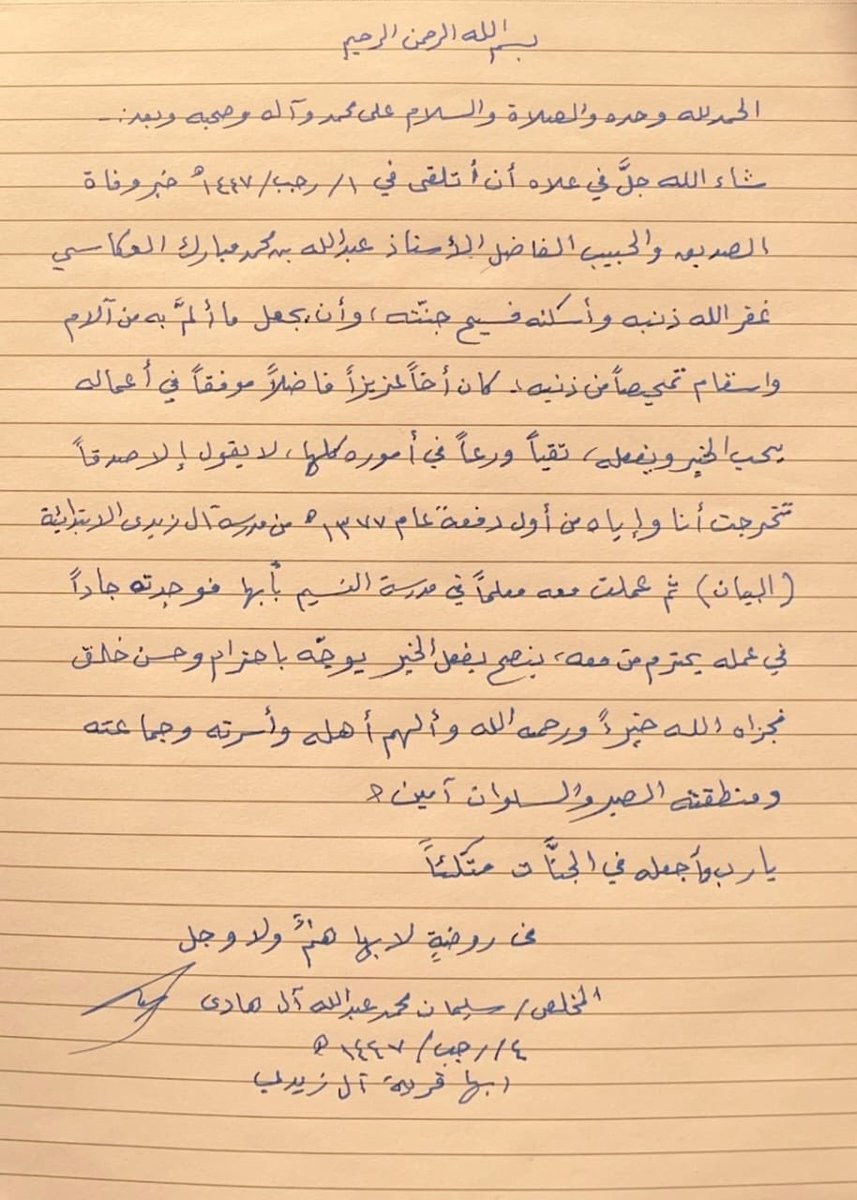 بسم الله الرحمن الرحيم
الحمد لله وحده والصلاة والسلام على محمد وآله وصحبه وبعد:-
شاء الله جلَّ في علاه أن أتلقى في ١/رجب/١٤٤٧هـ خبر وفاة
الصديق والحبيب الفاضل الأستاذ عبدالله بن محمد مبارك العكاسي
غفر الله ذنبه وأسكنه فسيح جنّته، وأن يجعل ما ألمَّ به من آلام
واسقام تمحيصاً من ذنبه. كان أخاً عزيزاً فاضلاً موفقاً في أعماله
يحب الخير ويفعله، تقياً ورعاً في أموره كلها، لا يقول إلا صدقاً
تخرجت أنا وإياه من أول دفعة عام ١٣٧٧هـ من مدرسة آل زيدي الابتدائية
(البيان) ثم عملت معه معلماً في مدرسة النسيم بأبها فوجدته جاداً
في عمله يحترم من معه، ينصح بفعل الخير يوجّه باحترام وحسن خلق
فجزاه الله خيراً ورحمه الله وألهم أهله وأسرته وجماعته
ومنطقته الصبر والسلوان آمين
يا رب واجعله في الجنَّات متكئاً
في روضةٍ لا بها همٌّ ولا وجل
المخلص/ سليمان محمد عبدالله آل هادي
٤/رجب/١٤٤٧هـ
ابها قرية آل زيدي